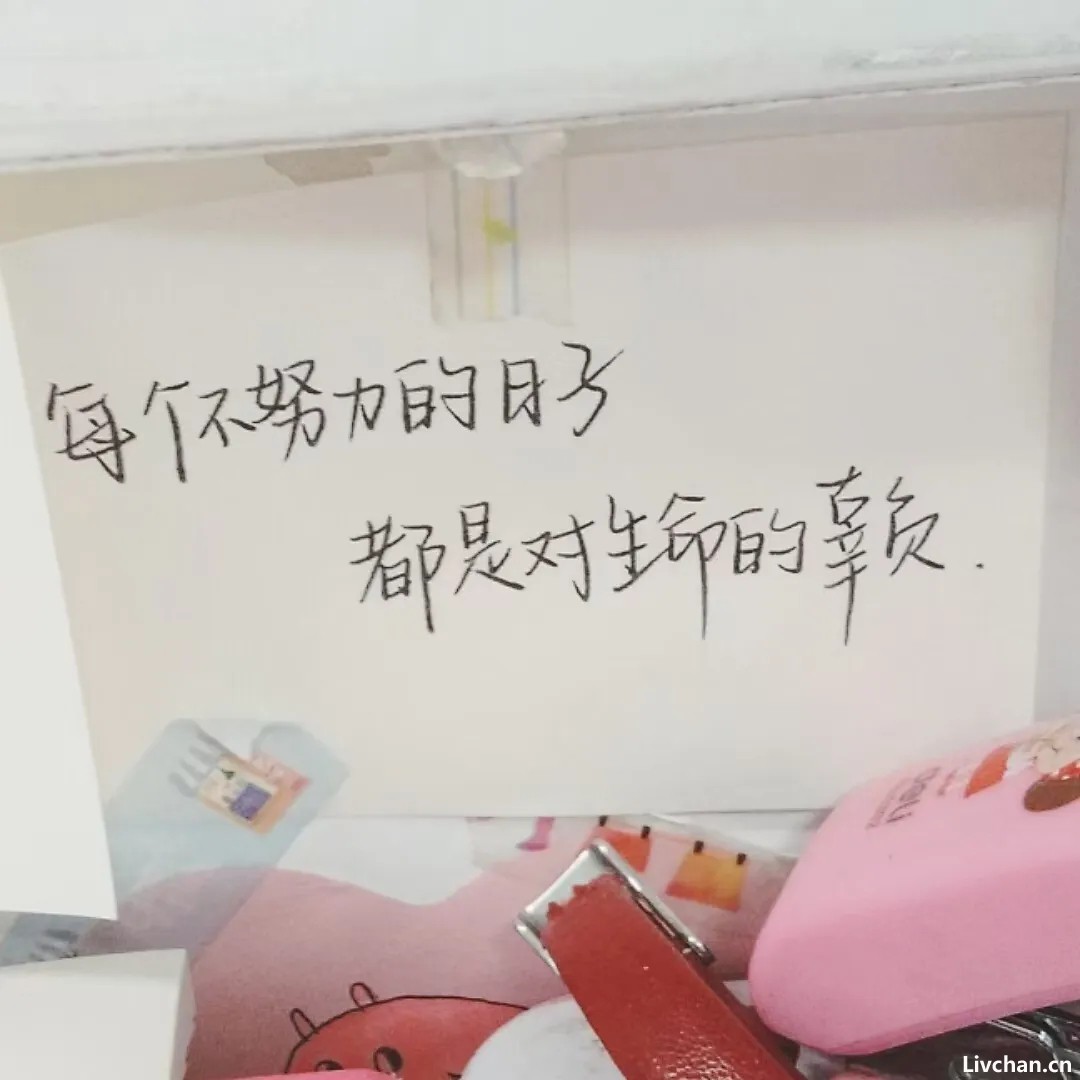 每个不努力的日子
都是对生命的辜负.
deli
Livchan.cn